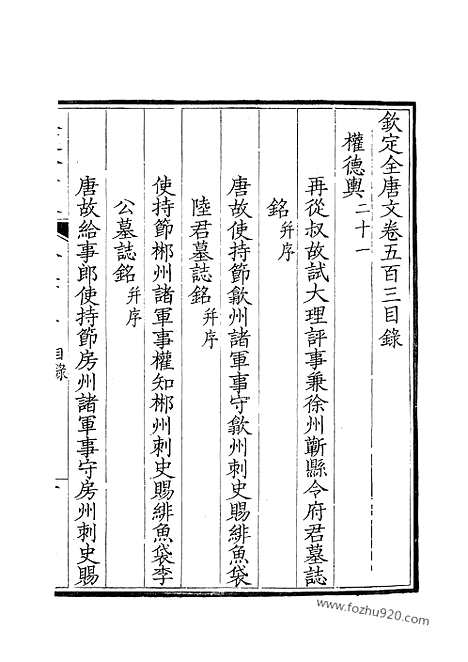 欽定全唐文卷五百三目錄
權德輿二十一
再從叔故試大理評事兼徐州蘄縣令府君墓誌
銘并序
唐故使持節歙州諸軍事守歙州刺史賜緋魚袋
陸君墓誌銘并序
使持節郴州諸軍事權知郴州刺史賜緋魚袋李
公墓誌銘并序
唐故給事郎使持節房州諸軍事守房州刺史賜
目錄
www.fozhu920.com